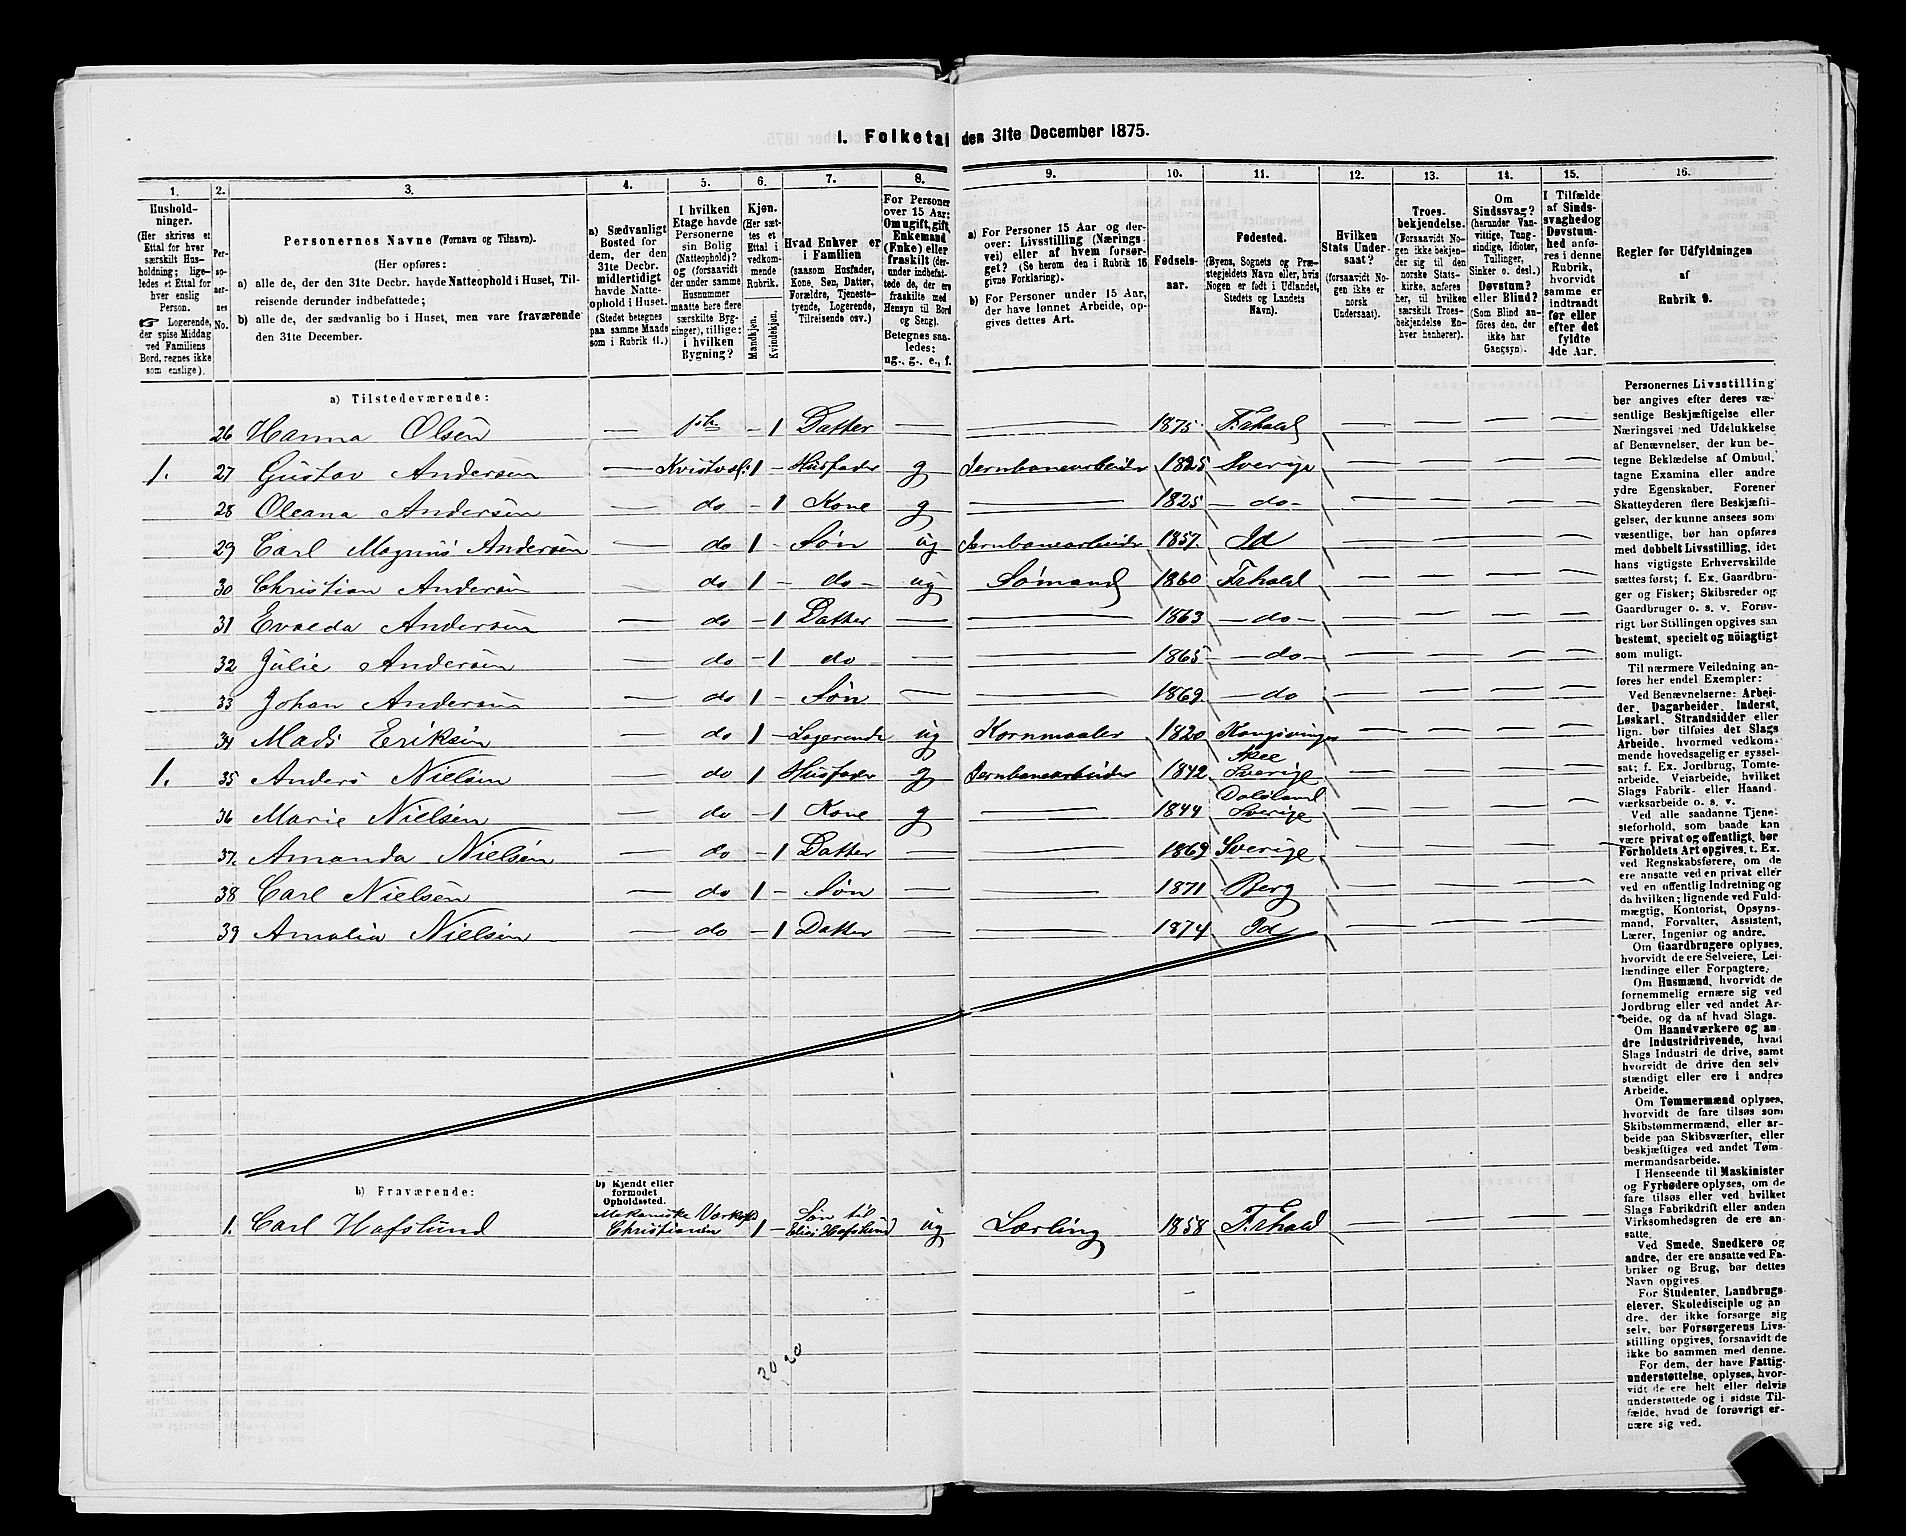 1. Folketal den 31te December 1875.
1. 2. 3. 4. 5. 6. 7. 8. 9. 10. 11. 12. 13. 14. 15. 16.
Husholdninger.
(Her skrives et
Ettal for hver
særskilt Husholdning;
ligeledes et Ettal for
hver enslig
Person.
☞ Logerende,
der spise Middag
ved Familiens
Bord, regnes ikke
som enslige).
Personernes No.
Personernes Navne (Fornavn og Tilnavn).
(Her opføres:
a) alle de, der den 31te Decbr. havde Natteophold i Huset, Tilreisende derunder indbefattede;
b) alle de, der sædvanlig bo i Huset, men vare fraværende
den 31te December.
a) Sædvanligt
Bosted for
dem, der den
31te Decbr.
midlertidigt
havde Natteophold i Huset.
(Stedet betegnes
paa samme Maade
som i Rubrik 11.)
I hvilken
Etage havde
Personerne
sin Bolig
(Natteophold)?
og (forsaavidt
der under samme
Husnummer
maatte høre flere
særskilte Bygninger), tillige:
i hvilken
Bygning?
Kjøn.
(Her sættes et
Ettal i
vedkommende
Rubrik.
Mandkjøn. Kvindekjøn.
Hvad Enhver er
i Familien
(saasom Husfader,
Kone, Søn, Datter,
Forældre, Tjenestetyende, Logerende,
Tilreisende osv.)
For Personer
over 15 Aar:
Om ugift, gift,
Enkemand
(Enke) eller
fraskilt (derunder indbefattede de, der ere
fraskilte med
Hensyn til Bord
og Seng).
Betegnes saaledes:
ug., g., e., f.
a) For Personer 15 Aar og derover: Livsstilling (Næringsvei) eller af hvem forsørget? (Se herom den i Rubrik 16
givne Forklaring).
b) For Personer under 15 Aar,
der have lønnet Arbeide, opgives dettes Art.
Fødselsaar.
Fødested.
(Byens, Sognets og Præstegjeldets Navn eller, hvis
Nogen er født i Udlandet,
Stedets og Landets
Navn).
Hvilken
Stats Undersaat?
(forsaavidt Nogen ikke er
norsk
Undersaat).
Troesbekjendelse.
(Forsaavidt Nogen ikke bekjender sig til den
norske Statskirke, anføres
her, til hvilken
særskilt Troesbekjendelse Enhver henhører).
Om
Sindssvag?
(herunder Vanvittige, Tungsindige, Idioter,
Tullinger,
Sinker o. desl.)
Døvstum?
eller Blind?
(Som Blind anføres den, der
ikke har
Gangsyn).
I Tilfælde
af Sindssvaghed og
Døvstumhed anføres i denne
Rubrik,
hvorvidt
samme er
indtraadt
før eller
efter det
fyldte
4de Aar.
Regler før Udfyldningen
af
Rubrik 9.
a) Tilstedeværende:
26 Hanna Olsen — 1 Datter — — 1875 Frhald — — —
1. 27 Gustav Andersen — 1 – Husfader g Jernbanearbeider 1825 Sverige — — — —
28 Oleana Andersen — do – 1 Kone g — 1825 – do – — — — —
29 Carl Magnus Andersen — do 1 – Søn ug Jernbanearbeider 1857. Id — — — —
30 Christian Andersen — do 1 – do – ug Sømand 1860 Frhald — — — —
31 Evalda Andersen — do – 1 Datter — — 1863 – do – — — — —
32 Julie Andersen — do – 1 do — — 1865 – do – — — — —
33 Johan Andersen — do 1 – Søn — — 1869 – do — — — —
34 Mads Eriksen — do 1 – Logerende ug Kornmaaler 1820 — — — —
1. 35 Anders Nielsen — do 1 Husfader g Jernbanearbeider 1842 Sverige — — — —
36 Marie Nielsen — do – 1 Kone g — 1844 Dalsland Sverige — — — —
37. Amanda Nielsen — do – 1 Datter — — 1869 Sverige — — — —
38 Carl Nielsen — do 1 – Søn — — 1871 Berg — — — —
39 Amalia Nielsen — do – 1 Datter — — 1874 Id — — — —
b) Fraværende:
b) Kjendt eller
formodet
Opholdssted.
1. Carl Hafslund Mekaniske Værksted Christiania 1 – Søn til Elise Hafslund ug Lærling 1858 Frhald — — — —
20 20
Personernes Livsstilling
bør angives efter deres væsentlige Beskjæftigelse eller
Næringsvei med Udelukkelse
af Benævnelser, der kun betegne Beklædelse af Ombud,
tagne Examina eller andre
ydre Egenskaber. Forener
Skatteyderen flere Beskjæftigelser, der kunne ansees som
væsentlige, bør han opføres
med dobbelt Livsstilling, idet
hans vigtigste Erhvervskilde
sættes først; f. Ex. Gaardbruger og Fisker; Skibsreder og
Gaardbruger o. s. v. Forøvrigt bør Stillingen opgives saa
bestemt, specielt og nöiagtigt
som muligt.
Til nærmere Veiledning anføres her endel Exempler:
Ved Benævnelserne: Arbeider, Dagarbeider, Inderst,
Løskarl, Strandsidder eller
lign. bør tilføies det Slags
Arbeide, hvormed vedkommende hovedsagelig er sysselsat; f. Ex. Jordbrug, Tomtearbeide, Veiarbeide, hvilket
Slags Fabrik- eller Haandværksarbeide o. s. v.
Ved alle saadanne Tjenesteforhold, som baade kan
være privat og offentligt, bør
Forholdets Art opgives, t. Ex.
ved Regnskabsførere, om de
ere ansatte ved en privat eller
ved en offentlig Indretning og
da hvilken; lignende ved Fuldmægtig, Kontorist, Opsynsmand, Forvalter, Assistent,
Lærer, Ingeniør og andre.
Om Gaardbrugere oplyses,
hvorvidt de ere Selveiere, Leilændinge eller Forpagtere.
Om Husmænd, hvorvidt de
fornemmelig ernære sig ved
Jordbrug eller ved andet Arbeide, og da af hvad Slags.
Om Haandværkere og andre Industridrivende, hvad
Slags Industri de drive, samt
hvorvidt de drive den selvstændigt eller ere i andres
Arbeide.
Om Tømmermænd oplyses,
hvorvidt de fare tilsøs som
Skibstømmermænd, eller arbeide paa Skibsværfter, eller
beskjæftiges ved andet Tømmermandsarbeide.
I Henseende til Maskinister
og Fyrbødere oplyses, om de
fare tilsøs eller ved hvilket
Slags Fabrikdrift eller anden
Virksomhedsgren de ere ansatte.
Ved Smede, Snedkere og
andre, der ere ansatte ved Fabriker og Brug, bør dettes
Navn opgives
For Studenter, Landbrugselever, Skoledisciple og andre, der ikke forsørge sig
selv, bør Forsørgerens Livsstilling opgives, forsaavidt de
ikke bo sammen med denne.
For dem, der have Fattigunderstøttelse, oplyses, hvorvidt de ere helt eller delvis
understøttede og i sidste Tilfælde, hvad de forøvrigt ernære sig ved.